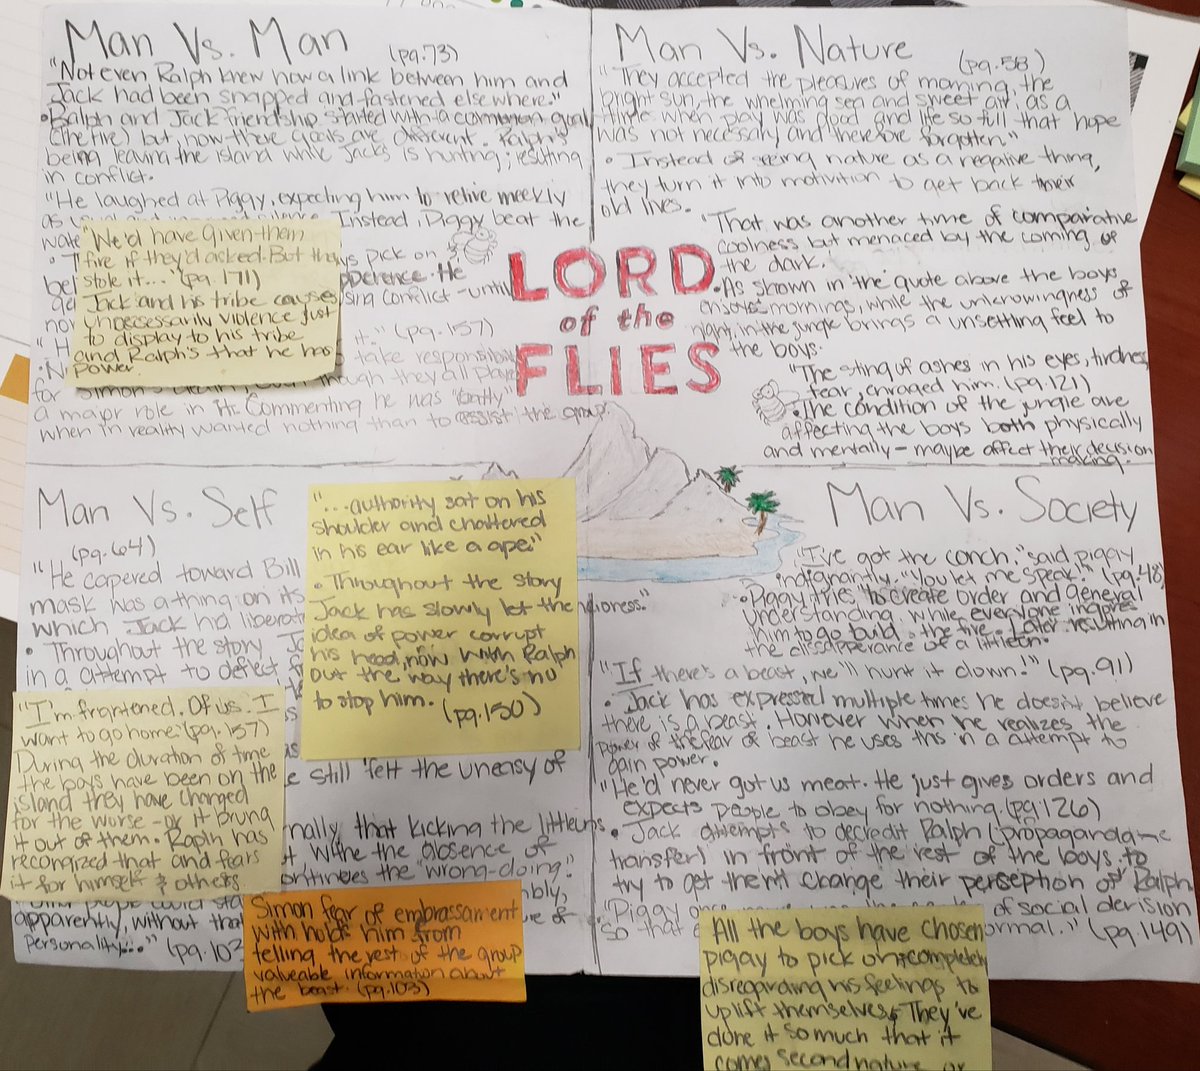 Man Vs. Man
(pg.73)
"Not even Ralph knew how a link between him and
Jack had been snapped and fastened elsewhere."
• Ralph and Jack friendship started with a common goal
(the fire) but now there goals are different. Ralph's
being leaving the island while Jack's is hunting; resulting
in conflict.
"He laughed at Piggy, expecting him to retire meekly
as Instead, Piggy beat the
wate
pick on
He
sing conflict - until
now
"H it." (pg.157)
• N take responsibility
for Simon's death though they all played
a major role in it. Commenting he was "batty"
when in reality wanted nothing than to assist the group.
"We'd have given them
fire if they'd asked. But they
stole it..." (pg. 171)
Jack and his tribe causes
unnecessarily violence just
to display to his tribe
and Ralph's that he has
power.
LORD
of the
FLIES
Man Vs. Nature
(pg.58)
"They accepted the pleasures of morning, the
bright sun, the whelming sea and sweet air, as a
time when play was good and life so full that hope
was not necessary and therefore forgotten."
• Instead of seeing nature as a negative thing,
they turn it into motivation to get back their
old lives.
"That was another time of comparative
coolness but menaced by the coming of
the dark.
• As shown in the quote above the boys
enjoys mornings, while the unknowingness of
night, in the jungle brings a unsettling feel to
the boys.
"The sting of ashes in his eyes, tiredness,
fear, enraged him. (pg.121)
• The condition of the jungle are
affecting the boys both physically
and mentally - maybe affect their decision
making
Man Vs. Self
(pg.64)
"He capered toward Bill
mask was a thing on its
which Jack had liberat
• Throughout the story Ja
in a attempt to
"...authority sat on his
shoulder and chattered
in his ear like a ape."
• Throughout the story
Jack has slowly let the
idea of power corrupt
his head, now with Ralph
out the way there's no
to stop him.
(pg.150)
"I'm frightened. Of us. I
want to go home." (pg.157)
During the duration of time
the boys have been on the
island they have changed
for the worse - or it brung
it out of them. Raplh has
recongized that and fears
it for himself & others
e still felt the uneasy of
nally, that kicking the littleuns
t withe the absence of
ontinues the "wrong-doing."
bly,
apparently, without that
personality..." (pg.103
Simon fear of embrassament
with holds him from
telling the rest of the group
valueable information about
the beast. (pg.103)
Man Vs. Society
"I've got the conch." said piggy
indignantly. "You let me speak!" (pg.48)
• Piggy tries to create order and general
understanding while everyone ingores
him to go build the fire. Later resulting in
the dissapperance of a littleun.
"If there's a beast, we'll hunt it down!" (pg.91)
• Jack has expressed multiple times he doesn't believe
there is a beast. However when he realizes the
power of the fear of beast he uses this in a attempt to
gain power.
"He'd never got us meat. He just gives orders and
expects people to obey for nothing (pg.126)
• Jack attempts to decredit Ralph (propaganda
transfer) in front of the rest of the boys, to
try to get them change their perseption of Ralph
"Piggy once of social derision
so that ormal." (pg.149)
All the boys have chosen
piggy to pick on, completely
disregarding his feelings to
uplift themselves. They've
done it so much that it
comes second nature or